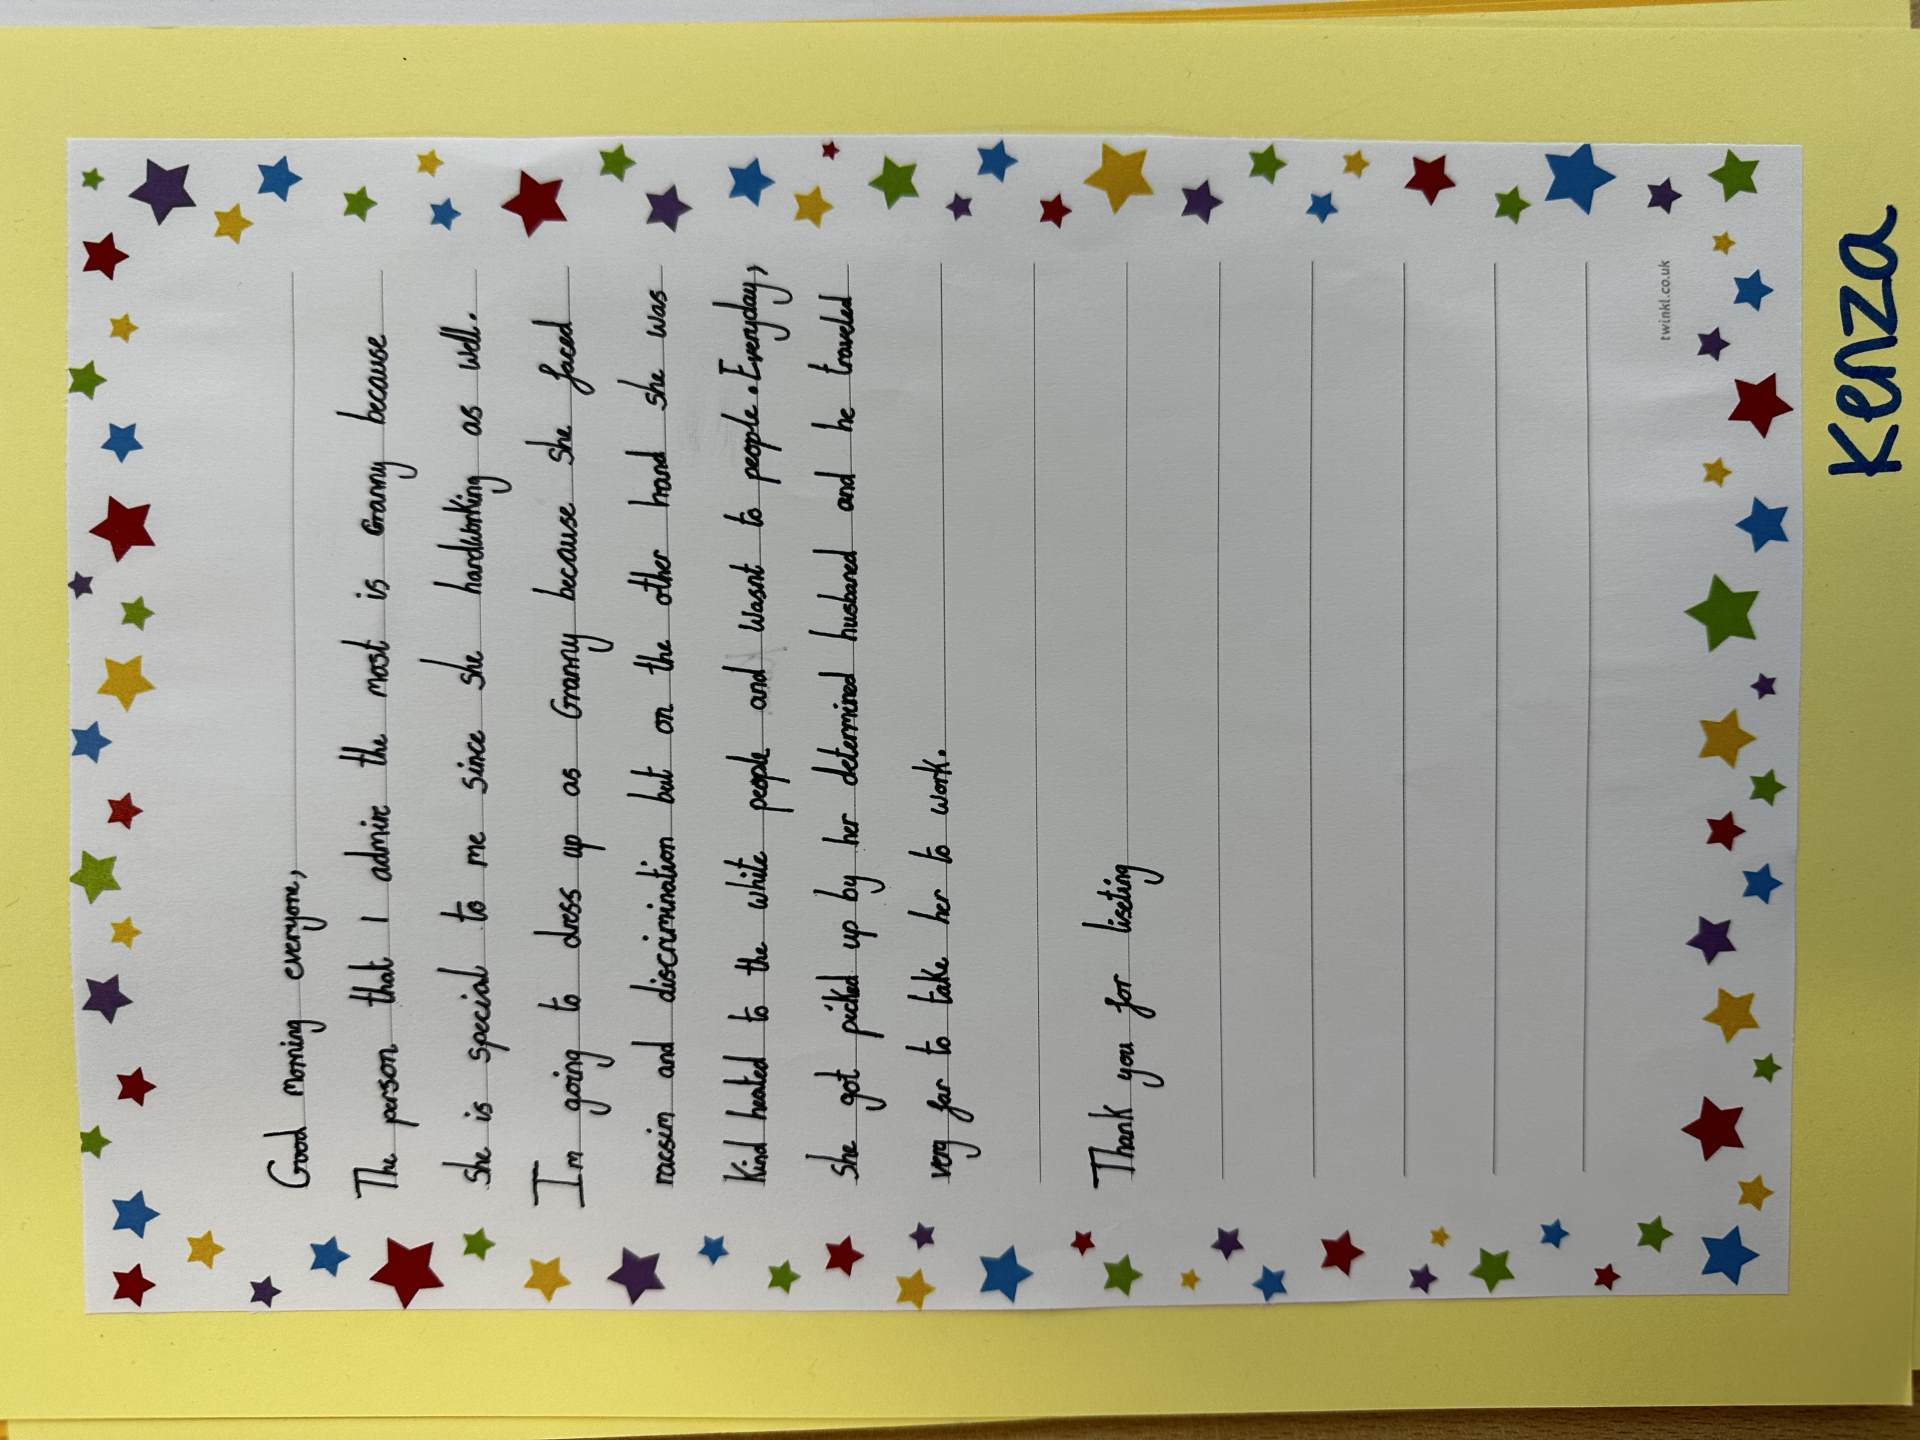 Good morning everyone,
The person that I admire the most is Granny because
she is special to me since she handworking as well.
Im going to dress up as Granny because she faced
racsim and discrimination but on the other hand she was
Kind heated to the white people and wasnt to people. Everyday,
she got picked up by her determined husbaned and he traveled
very far to take her to work.
Thank you for liseting
twinkl.co.uk
Kenza